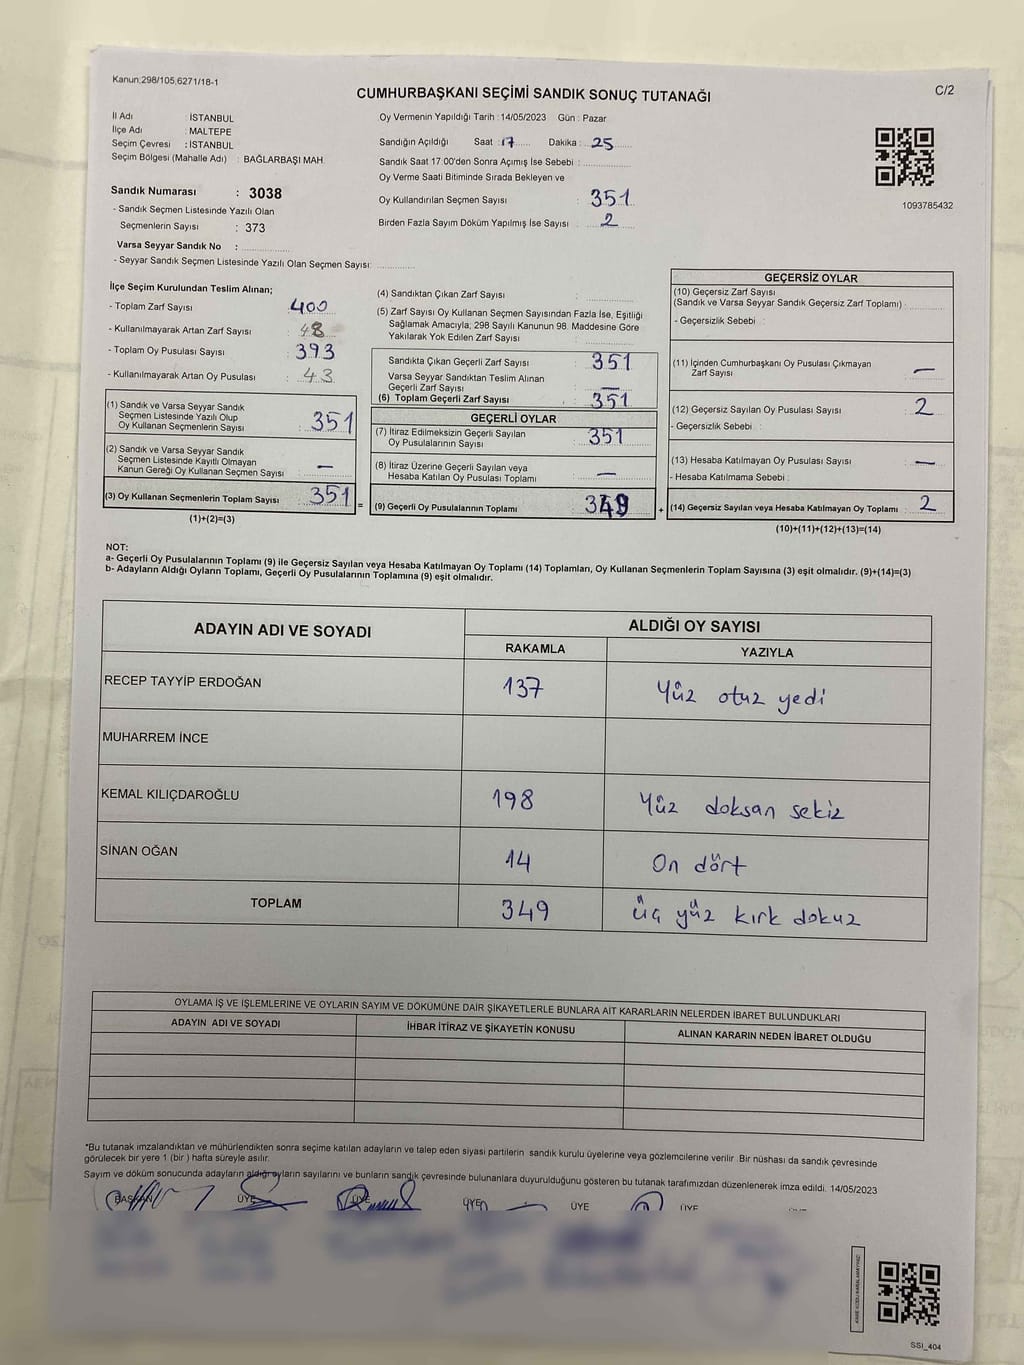 Kanun;298/105,6271/18-1
C/2
CUMHURBAŞKANI SEÇİMİ SANDIK SONUÇ TUTANAĞI
İl Adı : İSTANBUL
İlçe Adı : MALTEPE
Seçim Çevresi : İSTANBUL
Seçim Bölgesi (Mahalle Adı) : BAĞLARBAŞI MAH.
Sandık Numarası : 3038
- Sandık Seçmen Listesinde Yazılı Olan
Seçmenlerin Sayısı : 373
Varsa Seyyar Sandık No :
- Seyyar Sandık Seçmen Listesinde Yazılı Olan Seçmen Sayısı:
Oy Vermenin Yapıldığı Tarih : 14/05/2023 Gün : Pazar
Sandığın Açıldığı Saat : 17 Dakika : 25
Sandık Saat 17:00'den Sonra Açımış İse Sebebi :
Oy Verme Saati Bitiminde Sırada Bekleyen ve
Oy Kullandırılan Seçmen Sayısı : 351
Birden Fazla Sayım Döküm Yapılmış İse Sayısı : 2
1093785432
İlçe Seçim Kurulundan Teslim Alınan;
- Toplam Zarf Sayısı : 400
- Kullanılmayarak Artan Zarf Sayısı : 48
- Toplam Oy Pusulası Sayısı : 393
- Kullanılmayarak Artan Oy Pusulası : 43
(1) Sandık ve Varsa Seyyar Sandık
Seçmen Listesinde Yazılı Olup
Oy Kullanan Seçmenlerin Sayısı : 351
(2) Sandık ve Varsa Seyyar Sandık
Seçmen Listesinde Kayıtlı Olmayan
Kanun Gereği Oy Kullanan Seçmen Sayısı : –
(3) Oy Kullanan Seçmenlerin Toplam Sayısı : 351
(1)+(2)=(3)
=
(4) Sandıktan Çıkan Zarf Sayısı :
(5) Zarf Sayısı Oy Kullanan Seçmen Sayısından Fazla İse, Eşitliği
Sağlamak Amacıyla; 298 Sayılı Kanunun 98. Maddesine Göre
Yakılarak Yok Edilen Zarf Sayısı :
Sandıkta Çıkan Geçerli Zarf Sayısı : 351
Varsa Seyyar Sandıktan Teslim Alınan
Geçerli Zarf Sayısı : –
(6) Toplam Geçerli Zarf Sayısı : 351
GEÇERLİ OYLAR
(7) İtiraz Edilmeksizin Geçerli Sayılan
Oy Pusulalarının Sayısı : 351
(8) İtiraz Üzerine Geçerli Sayılan veya
Hesaba Katılan Oy Pusulası Toplamı : –
(9) Geçerli Oy Pusulalarının Toplamı : 349
+
GEÇERSİZ OYLAR
(10) Geçersiz Zarf Sayısı
(Sandık ve Varsa Seyyar Sandık Geçersiz Zarf Toplamı) :
- Geçersizlik Sebebi :
(11) İçinden Cumhurbaşkanı Oy Pusulası Çıkmayan
Zarf Sayısı : –
(12) Geçersiz Sayılan Oy Pusulası Sayısı : 2
- Geçersizlik Sebebi :
(13) Hesaba Katılmayan Oy Pusulası Sayısı : –
- Hesaba Katılmama Sebebi :
(14) Geçersiz Sayılan veya Hesaba Katılmayan Oy Toplamı : 2
(10)+(11)+(12)+(13)=(14)
NOT:
a- Geçerli Oy Pusulalarının Toplamı (9) ile Geçersiz Sayılan veya Hesaba Katılmayan Oy Toplamı (14) Toplamları, Oy Kullanan Seçmenlerin Toplam Sayısına (3) eşit olmalıdır. (9)+(14)=(3)
b- Adayların Aldığı Oyların Toplamı, Geçerli Oy Pusulalarının Toplamına (9) eşit olmalıdır.
ADAYIN ADI VE SOYADI
ALDIĞI OY SAYISI
RAKAMLA YAZIYLA
RECEP TAYYİP ERDOĞAN 137 Yüz otuz yedi
MUHARREM İNCE
KEMAL KILIÇDAROĞLU 198 Yüz doksan sekiz
SİNAN OĞAN 14 On dört
TOPLAM 349 üç yüz kırk dokuz
OYLAMA İŞ VE İŞLEMLERİNE VE OYLARIN SAYIM VE DÖKÜMÜNE DAİR ŞİKAYETLERLE BUNLARA AİT KARARLARIN NELERDEN İBARET BULUNDUKLARI
ADAYIN ADI VE SOYADI İHBAR İTİRAZ VE ŞİKAYETİN KONUSU ALINAN KARARIN NEDEN İBARET OLDUĞU
*Bu tutanak imzalandıktan ve mühürlendikten sonra seçime katılan adayların ve talep eden siyasi partilerin sandık kurulu üyelerine veya gözlemcilerine verilir. Bir nüshası da sandık çevresinde
görülecek bir yere 1 (bir ) hafta süreyle asılır.
Sayım ve döküm sonucunda adayların aldığı oyların sayılarını ve bunların sandık çevresinde bulunanlara duyurulduğunu gösteren bu tutanak tarafımızdan düzenlenerek imza edildi. 14/05/2023
BAŞKAN ÜYE ÜYE ÜYE ÜYE ÜYE
SSI_404